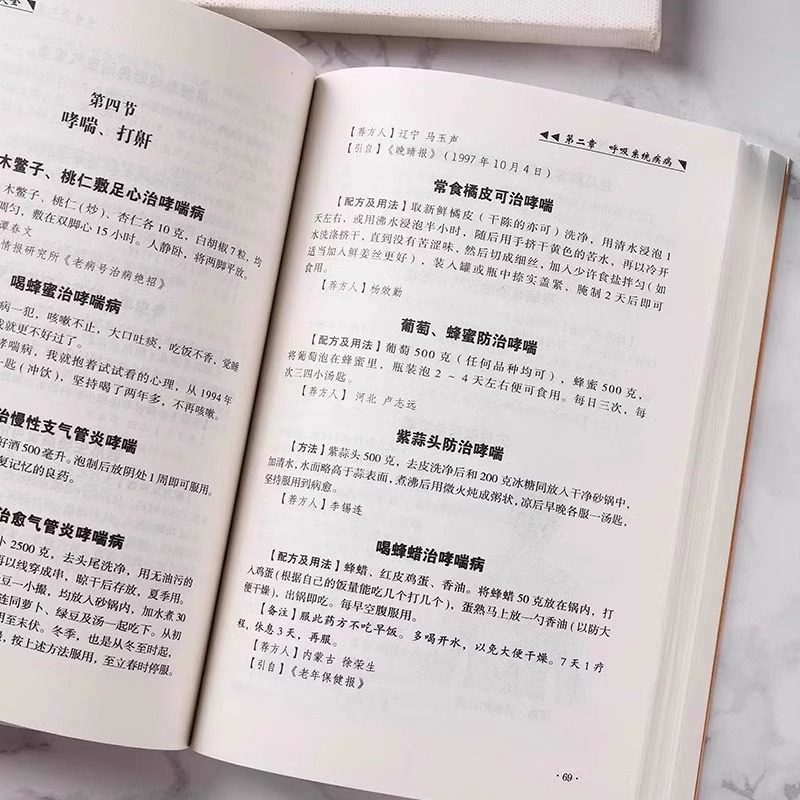 大全
第四节
哮喘、打鼾
木鳖子、桃仁敷足心治哮喘病
木鳖子、桃仁(炒)、杏仁各10克，白胡椒7粒，均
调匀，敷在双脚心15小时。人静卧，将两脚平放。
谭春文
情报研究所《老病号治病绝招》
喝蜂蜜治哮喘病
病一犯，咳嗽不止，大口吐痰，吃饭不香，觉睡
就更不好过了。
哮喘病，我就抱着试试看的心理，从1994年
匙（冲饮），坚持喝了两年多，不再咳嗽。
治慢性支气管炎哮喘
好酒500毫升。泡制后放阴处1周即可服用。
复记忆的良药。
治愈气管炎哮喘病
卜2500克，去头尾洗净，用无油污的
再以线穿成串，晾干后存放，夏季用。
豆一小撮，均放入砂锅内，加水煮30
连同萝卜、绿豆及汤一起吃下。从初
至末伏。冬季，也是从冬至时起，
，按上述方法服用，至立春时停服。
◀◀ 第二章 呼吸系统疾病
【荐方人】辽宁 马玉声
【引自】《晚晴报》（1997年10月4日）
常食橘皮可治哮喘
【配方及用法】取新鲜橘皮（干陈的亦可）洗净，用清水浸泡1
天左右，或用沸水浸泡半小时，随后用手挤干黄色的苦水，再以冷开
水洗涤挤干，直到没有苦涩味，然后切成细丝，加入少许食盐拌匀（如
适当加入鲜姜丝更好），装入罐或瓶中捺实盖紧，腌制2天后即可
食用。
【荐方人】杨效勤
葡萄、蜂蜜防治哮喘
【配方及用法】葡萄500克（任何品种均可），蜂蜜500克，
将葡萄泡在蜂蜜里，瓶装泡2～4天左右便可食用。每日三次，每
次三四小汤匙。
【荐方人】河北 卢志远
紫蒜头防治哮喘
【方法】紫蒜头500克，去皮洗净后和200克冰糖同放入干净砂锅中，
加清水，水面略高于蒜表面，煮沸后用微火炖成粥状，凉后早晚各服一汤匙，
坚持服用到病愈。
【荐方人】李锡连
喝蜂蜡治哮喘病
【配方及用法】蜂蜡、红皮鸡蛋、香油。将蜂蜡50克放在锅内，打
入鸡蛋（根据自己的饭量能吃几个打几个），蛋熟马上放一勺香油（以防大
便干燥），出锅即吃。每早空腹服用。
【备注】服此药方不吃早饭。多喝开水，以免大便干燥。7天1疗
程，休息3天，再服。
【荐方人】内蒙古 徐荣生
【引自】《老年保健报》
·69·